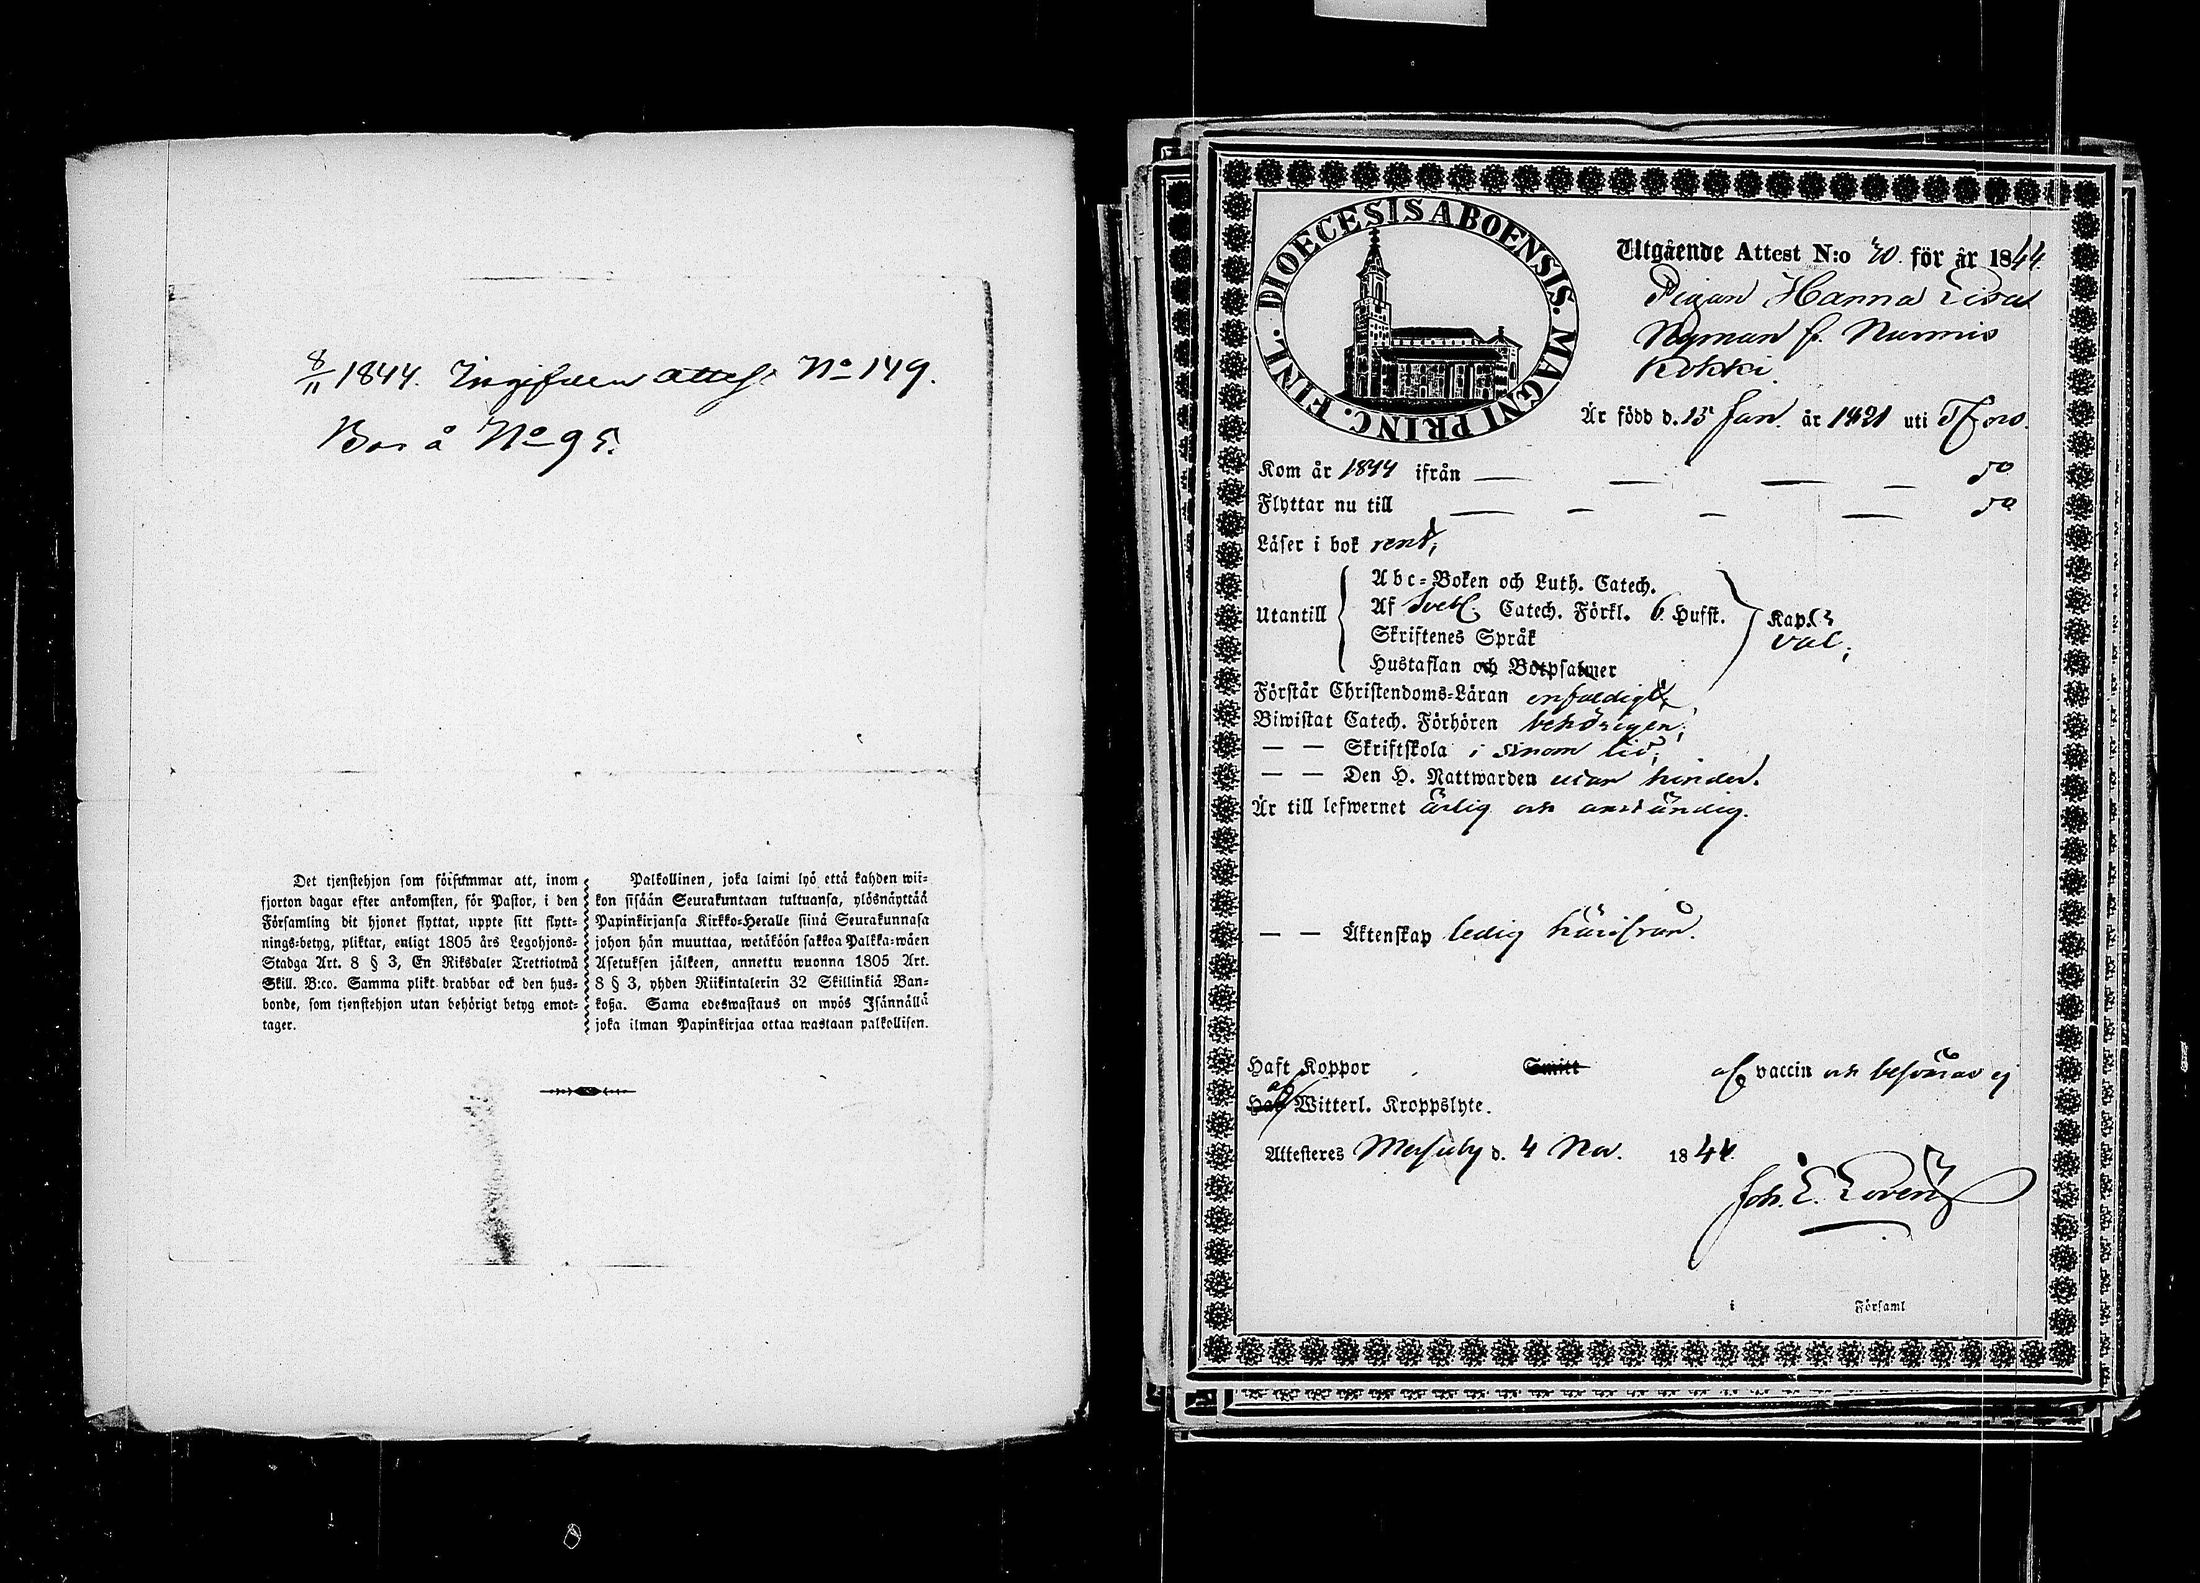 8/11 1844. Ingifven attest No 149.
Bor å No 95.
Det tjenstehjon som försummar att, inom
fjorton dagar efter ankomsten, för Pastor, i den
Församling dit hjonet flyttat, uppte sitt flytt-
nings-betyg, pliktar, enligt 1805 års Legohjons-
Stadga Art. 8 § 3, En Riksdaler Trettiotwå
Skill. B:co. Samma plikt drabbar ock den hus-
bonde, som tjenstehjon utan behörigt betyg emot-
tager.
Palkollinen, joka laimi lyö että kahden wii-
kon sisään Seurakuntaan tultuansa, ylösnäyttää
Papinkirjansa Kirkko-Heralle siinä Seurakunnasa
johon hän muuttaa, wetäköön sakkoa Palkka-wäen
Asetuksen jälkeen, annettu wuonna 1805 Art.
8 § 3, yhden Riikintalerin 32 Skillinkiä Ban-
koßa. Sama edeswastaus on myös Isännällä
joka ilman Papinkirjaa ottaa wastaan palkollisen.
DIOECESIS ABOENSIS. MAGNI PRINC. FINL.
Utgående Attest N:o 30. för år 1844.
Pigan Hanna Lisa
Nyman fr. Nurmis
Kokki.
Är född d. 15 Jan. år 1821 uti Tfors.
Kom år 1844 ifrån — — — — do
Flyttar nu till — — — — do
Läser i bok rent;
Utantill
Abc-Boken och Luth. Catech.
Af Sveb. Catech. Förkl. 6. Hufst.
Skriftenes Språk
Hustaflan och Botpsalmer
Kap.
väl;
Förstår Christendoms-Läran enfaldigt,
Biwistat Catech. Förhören behörigen;
— — Skriftskola i sinom tid,
— — Den H. Nattwarden utan hinder.
Är till lefwernet ärlig och anständig.
— — Äktenskap ledig härifrån.
Haft Koppor Smitt af vaccin och besväras ej
af
Har Witterl. Kroppslyte.
Attesteres Messuby d. 4 Nov. 1844.
Joh. E.
i Församl